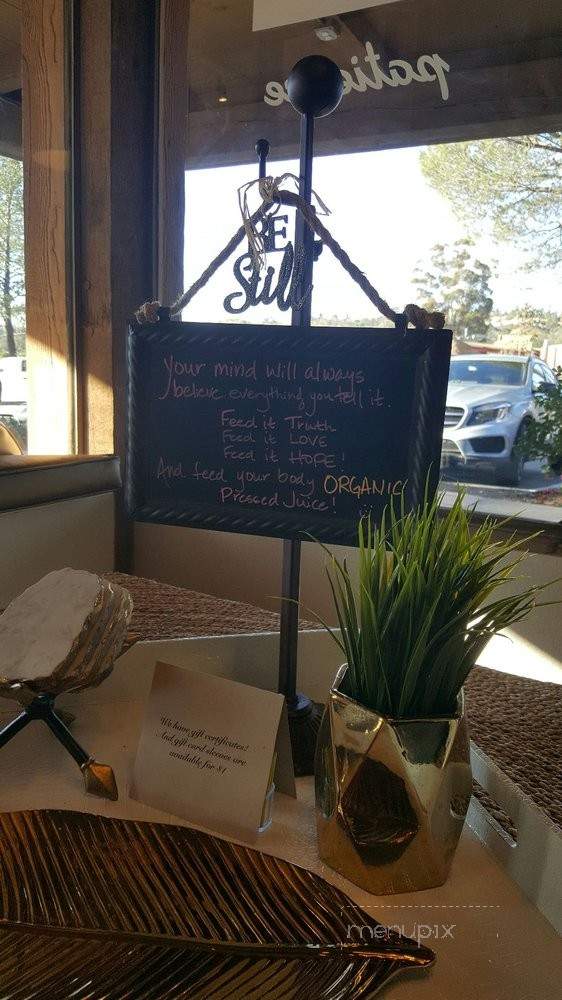 patie
BE
Still
Your mind will always
believe everything you tell it.
Feed it Truth
Feed it LOVE
Feed it HOPE!
And feed your body ORGANIC
Pressed Juice!
We have gift certificates!
And gift card sleeves are
available for $1
menupix